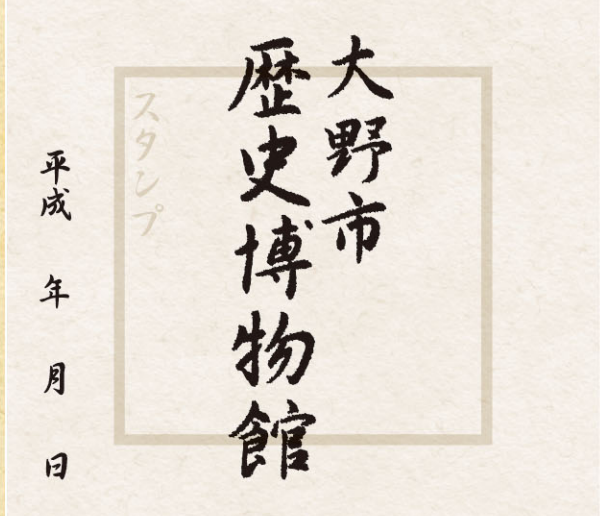 大野市
歴史博物館
スタンプ
平成 年 月 日